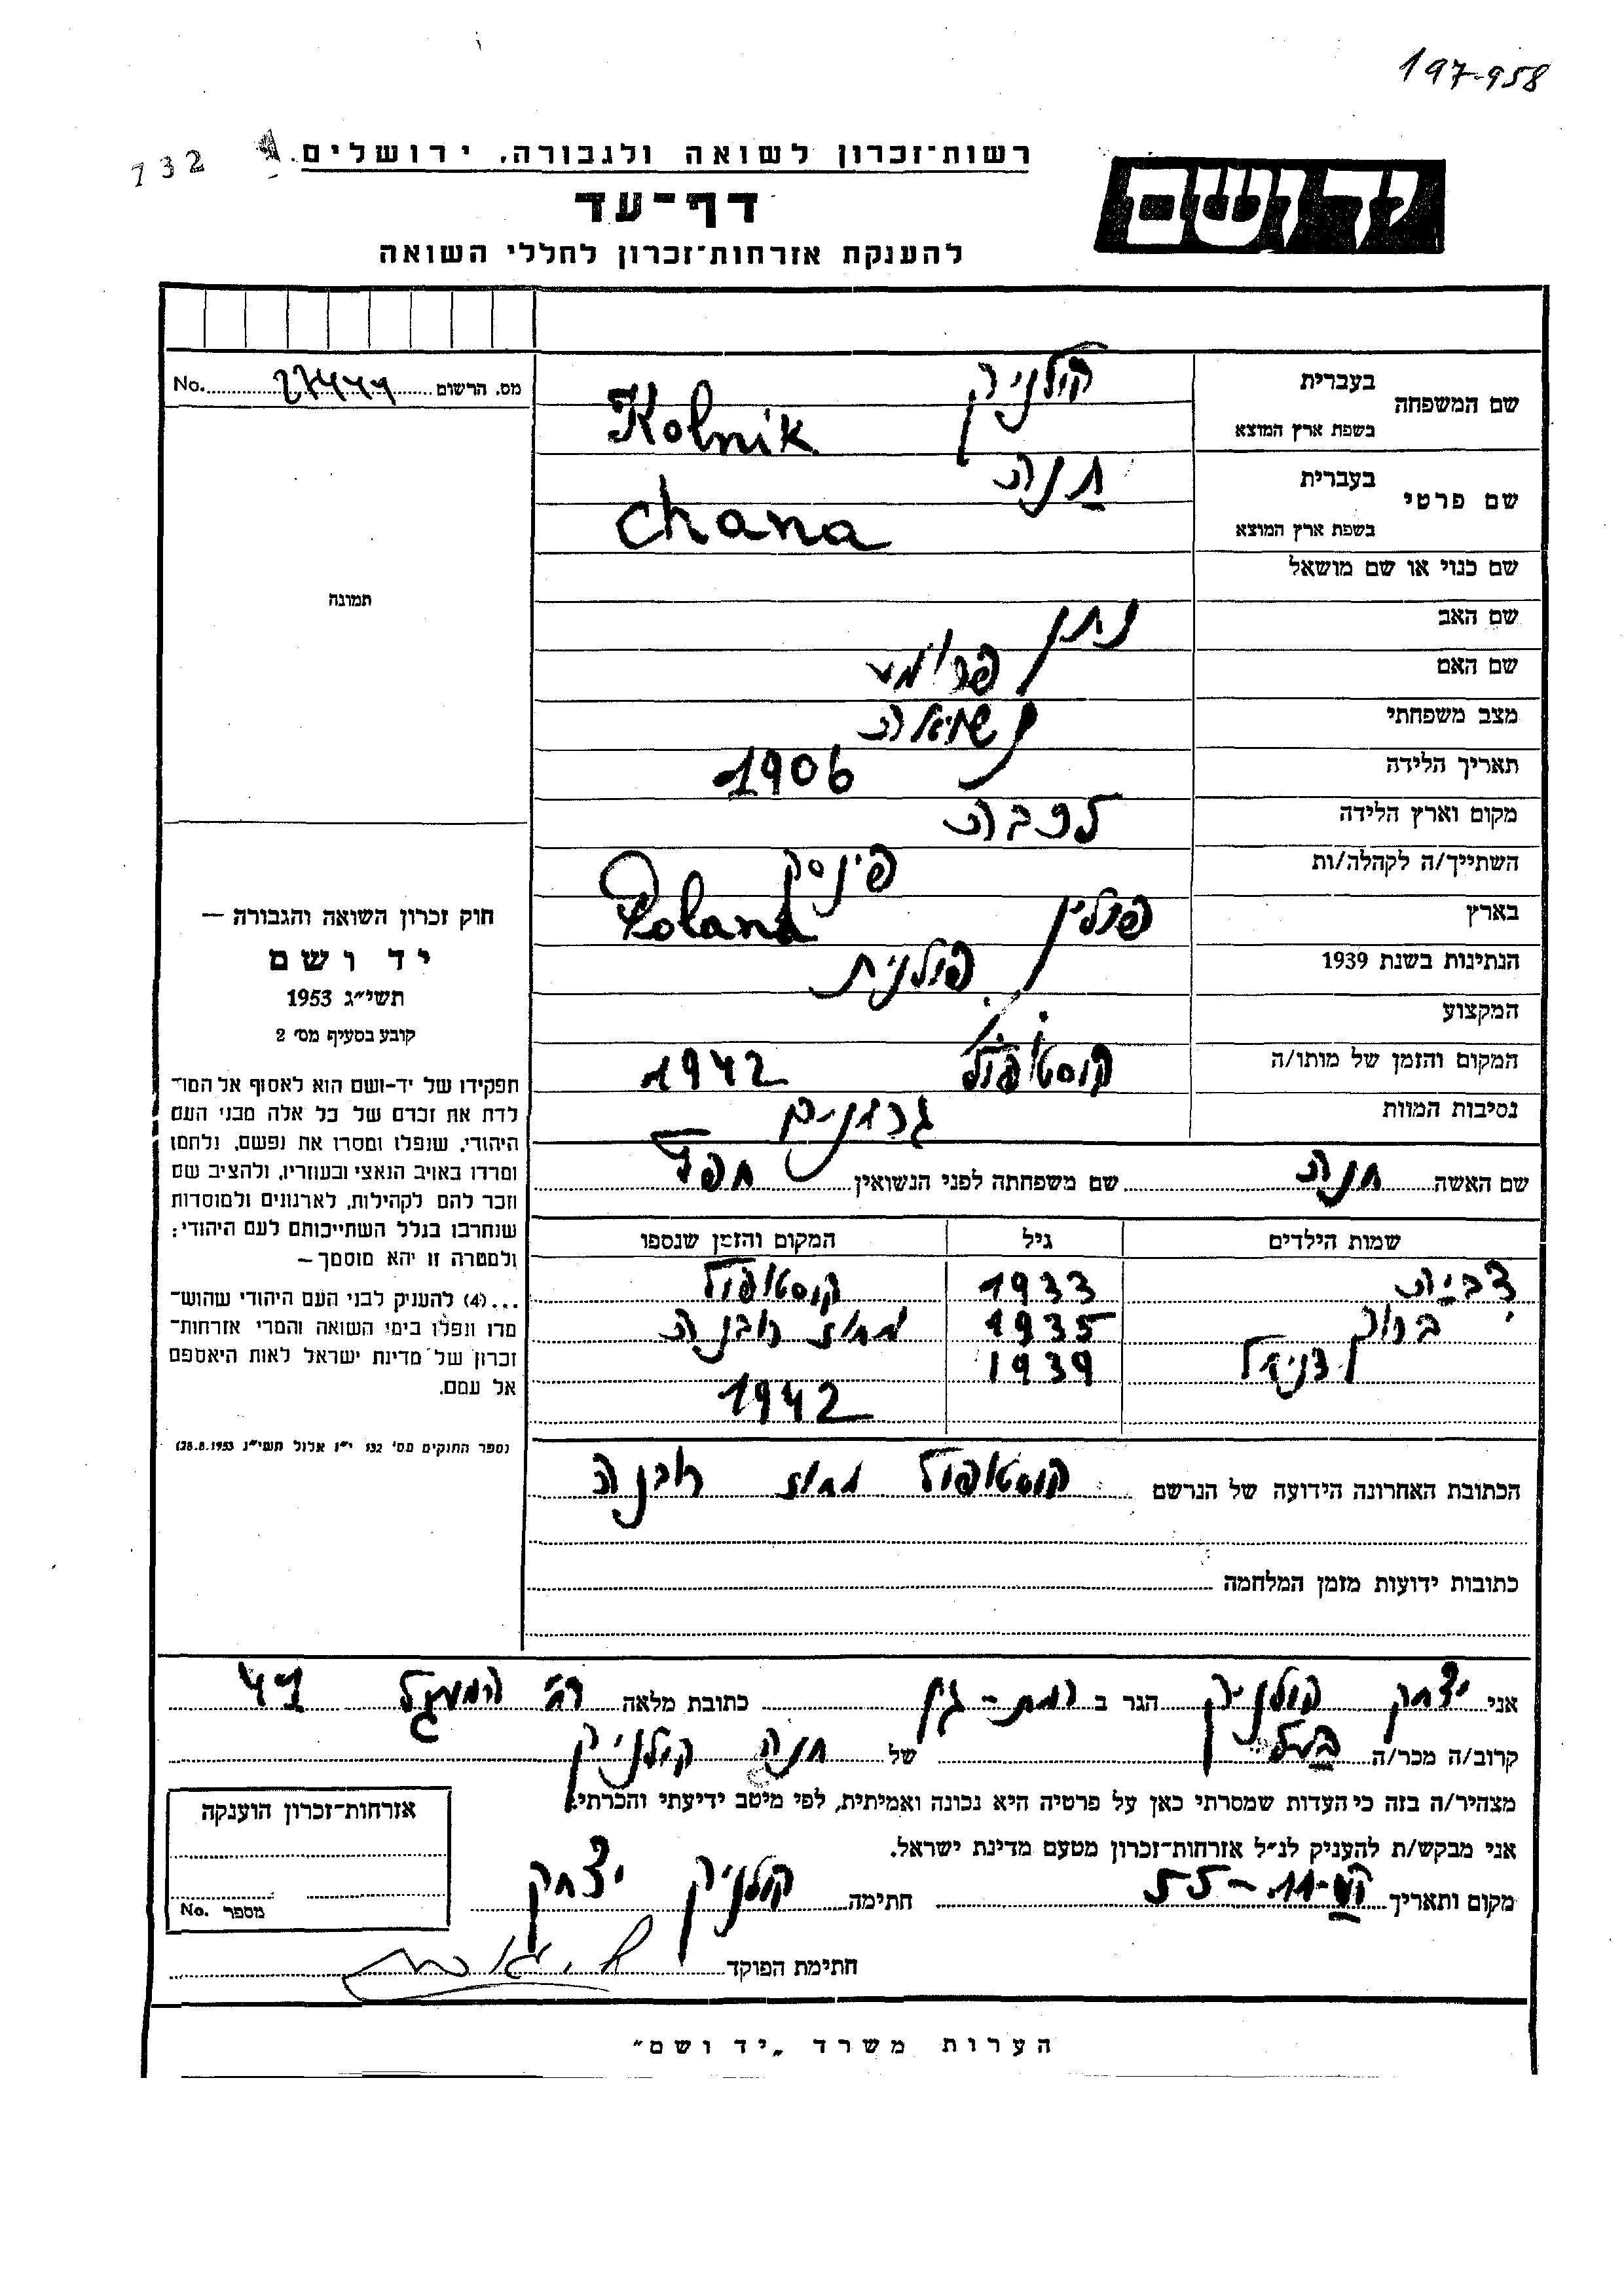 197-958
732
רשות־זכרון לשואה ולגבורה, ירושלים
יד ושם
דף־עד
להענקת אזרחות־זכרון לחללי השואה
מס. הרשום No.
שם המשפחה בעברית קולניק
בשפת ארץ המוצא Kolnik
שם פרטי בעברית חנה
בשפת ארץ המוצא Chana
שם כנוי או שם מושאל
שם האב נתן
שם האם פרומע
מצב משפחתי נשואה
תאריך הלידה 1906
מקום וארץ הלידה
השתייך/ה לקהלה/ות פינסק
בארץ פולין Poland
הנתינות בשנת 1939 פולנית
המקצוע
המקום והזמן של מותו/ה קוסטופול 1942
נסיבות המוות
שם האשה חנה שם משפחתה לפני הנשואין
שמות הילדים גיל המקום והזמן שנספו
צביה 1933 קוסטופול
ברוך 1935 מחוז רובנה
1939
1942
הכתובת האחרונה הידועה של הנרשם קוסטופול מחוז רובנה
כתובות ידועות מזמן המלחמה
תמונה
חוק זכרון השואה והגבורה —
יד ושם
תשי״ג 1953
קובע בסעיף מס׳ 2
תפקידו של יד-ושם הוא לאסוף אל המו־
לדת את זכרם של כל אלה מבני העם
היהודי, שנפלו ומסרו את נפשם, נלחמו
ומרדו באויב הנאצי ובעוזריו, ולהציב שם
וזכר להם לקהילות, לארגונים ולמוסדות
שנחרבו בגלל השתייכותם לעם היהודי;
ולמטרה זו יהא מוסמך —
...(4) להענין לבני העם היהודי שהוש־
מדו ונפלו בימי השואה והמרי אזרחות־
זכרון של מדינת ישראל לאות היאספם
אל עמם.
(ספר החוקים מס׳ 132 י״ז אלול תשי״ג 28.8.1953)
אני יצחק קולניק הגר ב רמת-גן כתובת מלאה רח׳ המעגל
קרוב/ה מכר/ה בעל של חנה קולניק
מצהיר/ה בזה כי העדות שמסרתי כאן על פרטיה היא נכונה ואמיתית, לפי מיטב ידיעתי והכרתי.
אני מבקש/ת להעניק לנ״ל אזרחות־זכרון מטעם מדינת ישראל.
מקום ותאריך 11-55 חתימה קולניק יצחק
חתימת הפוקד
אזרחות־זכרון הוענקה
מספר No.
הערות משרד „יד ושם״